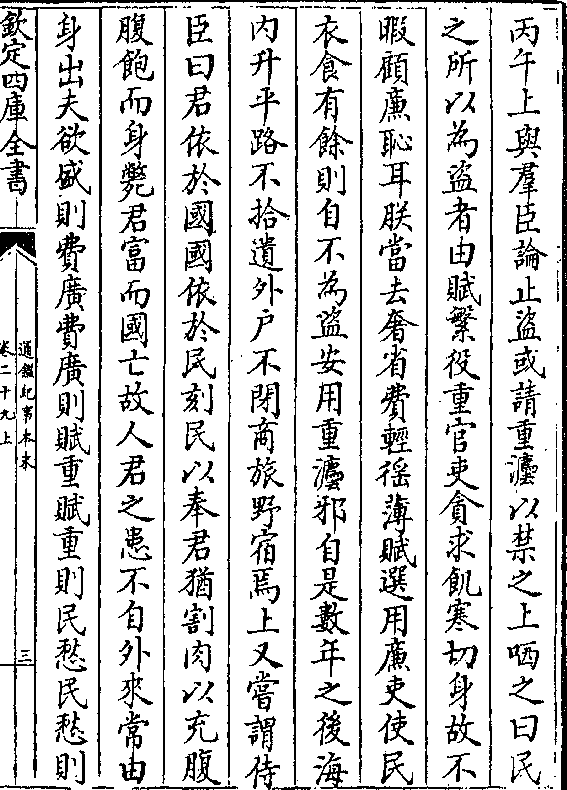 丙午上與羣臣論止盜或請重灋以禁之上哂之曰民
之所以為盜者由賦繁役重官吏貪求飢寒切身故不
暇顧廉恥耳朕當去奢省費輕徭薄賦選用廉吏使民
衣食有餘則自不為盜安用重灋邪自是數年之後海
内升平路不拾遺外戶不閉商旅野宿焉上又嘗謂侍
臣曰君依於國國依於民刻民以奉君猶割肉以充腹
腹飽而身斃君富而國亡故人君之患不自外來常由
身出夫欲盛則費廣費廣則賦重賦重則民愁民愁則
欽定四庫全書
通鑑紀事本末
卷二十九上
三